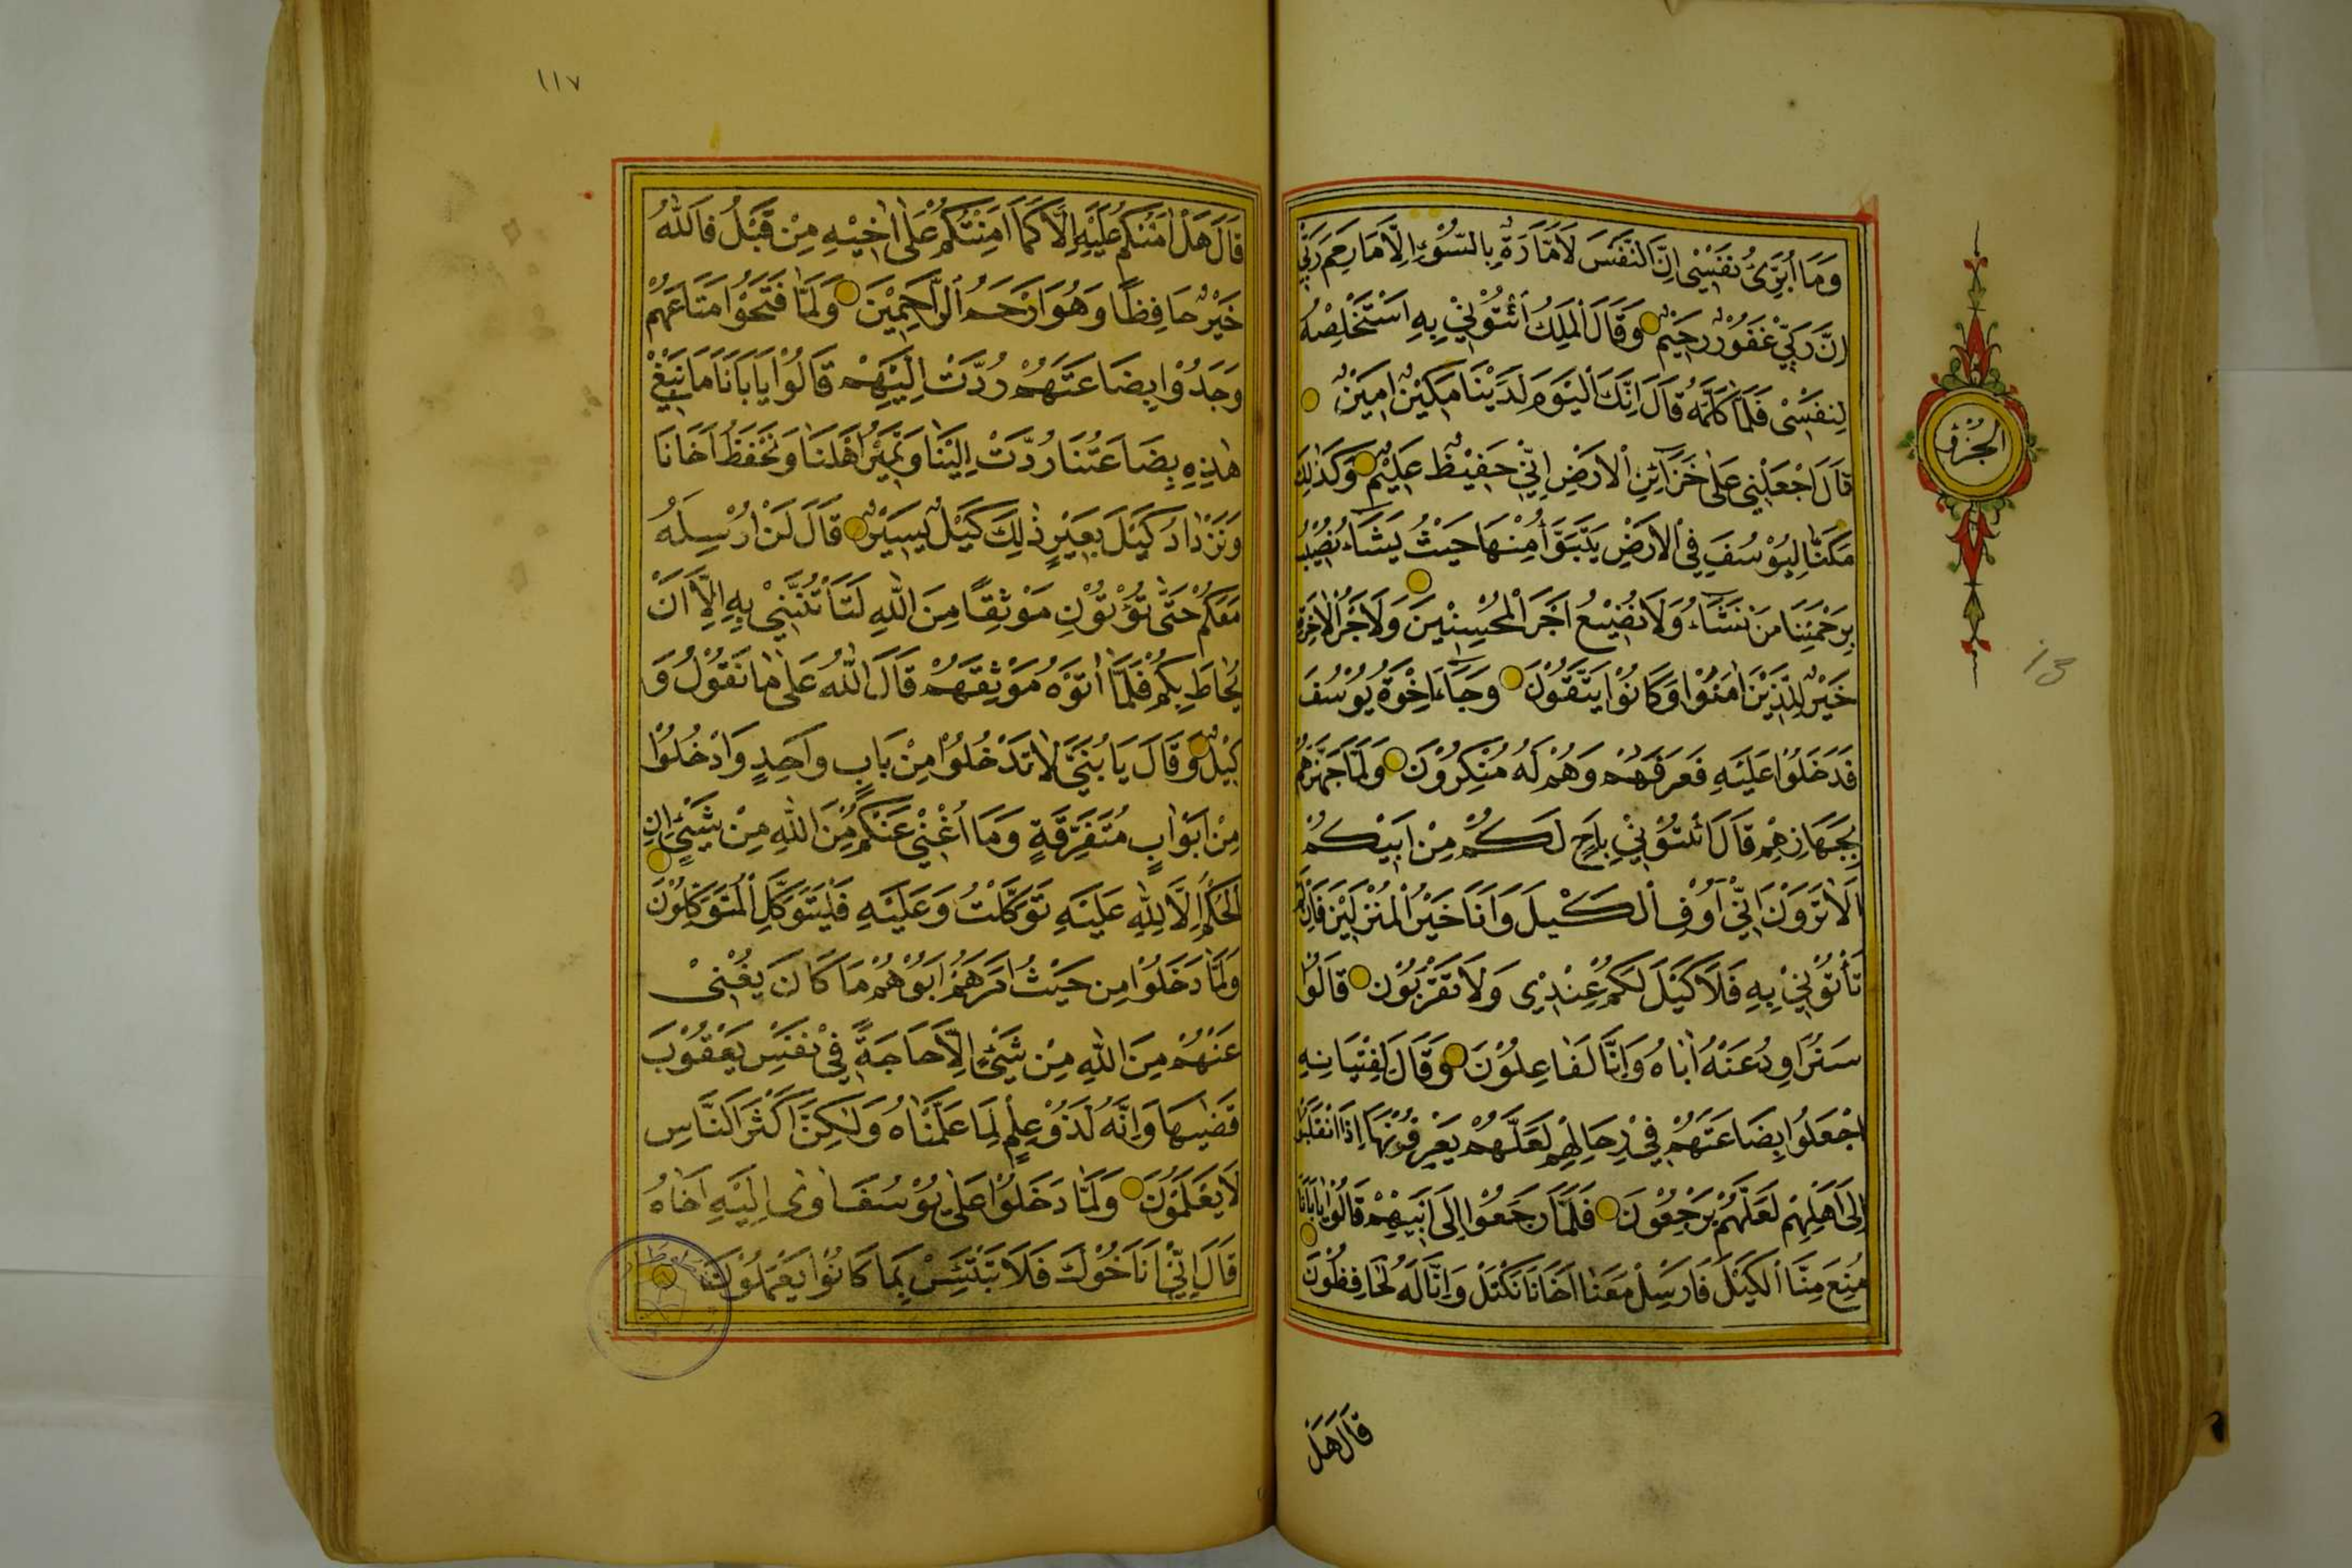 وَمَا اُبَرِّئُ نَفْسِي اِنَّ النَّفْسَ لَاَمَّارَةٌ بِالسُّوءِ اِلَّا مَا رَحِمَ رَبِّي
اِنَّ رَبِّي غَفُورٌ رَحِيمٌ وَقَالَ الْمَلِكُ ائْتُونِي بِهِ اَسْتَخْلِصْهُ
لِنَفْسِي فَلَمَّا كَلَّمَهُ قَالَ اِنَّكَ الْيَوْمَ لَدَيْنَا مَكِينٌ اَمِينٌ
قَالَ اجْعَلْنِي عَلٰى خَزَآئِنِ الْاَرْضِ اِنِّي حَفِيظٌ عَلِيمٌ وَكَذٰلِكَ
مَكَنَّا لِيُوسُفَ فِي الْاَرْضِ يَتَبَوَّأُ مِنْهَا حَيْثُ يَشَآءُ نُصِيبُ
بِرَحْمَتِنَا مَنْ نَشَآءُ وَلَا نُضِيعُ اَجْرَ الْمُحْسِنِينَ وَلَاَجْرُ الْاٰخِرَةِ
خَيْرٌ لِلَّذِينَ اٰمَنُوا وَكَانُوا يَتَّقُونَ وَجَآءَ اِخْوَةُ يُوسُفَ
فَدَخَلُوا عَلَيْهِ فَعَرَفَهُمْ وَهُمْ لَهُ مُنْكِرُونَ وَلَمَّا جَهَّزَهُمْ
بِجَهَازِهِمْ قَالَ ائْتُونِي بِاَخٍ لَكُمْ مِنْ اَبِيكُمْ
اَلَا تَرَوْنَ اَنِّي اُوفِ الْكَيْلَ وَاَنَا خَيْرُ الْمُنْزِلِينَ فَاِنْ لَمْ
تَأْتُونِي بِهِ فَلَا كَيْلَ لَكُمْ عِنْدِي وَلَا تَقْرَبُونِ قَالُوا
سَنُرَاوِدُ عَنْهُ اَبَاهُ وَاِنَّا لَفَاعِلُونَ وَقَالَ لِفِتْيَانِهِ
اجْعَلُوا بِضَاعَتَهُمْ فِي رِحَالِهِمْ لَعَلَّهُمْ يَعْرِفُونَهَا اِذَا انْقَلَبُوا
اِلٰى اَهْلِهِمْ لَعَلَّهُمْ يَرْجِعُونَ فَلَمَّا رَجَعُوا اِلٰى اَبِيهِمْ قَالُوا يَا اَبَانَا
مُنِعَ مِنَّا الْكَيْلُ فَاَرْسِلْ مَعَنَا اَخَانَا نَكْتَلْ وَاِنَّا لَهُ لَحَافِظُونَ
قَالَ هَلْ
الجزء
١١٧
قَالَ هَلْ اٰمَنُكُمْ عَلَيْهِ اِلَّا كَمَا اَمِنْتُكُمْ عَلٰى اَخِيهِ مِنْ قَبْلُ فَاللّٰهُ
خَيْرٌ حَافِظًا وَهُوَ اَرْحَمُ الرَّاحِمِينَ وَلَمَّا فَتَحُوا مَتَاعَهُمْ
وَجَدُوا بِضَاعَتَهُمْ رُدَّتْ اِلَيْهِمْ قَالُوا يَا اَبَانَا مَا نَبْغِي
هٰذِهِ بِضَاعَتُنَا رُدَّتْ اِلَيْنَا وَنَمِيرُ اَهْلَنَا وَنَحْفَظُ اَخَانَا
وَنَزْدَادُ كَيْلَ بَعِيرٍ ذٰلِكَ كَيْلٌ يَسِيرٌ قَالَ لَنْ اُرْسِلَهُ
مَعَكُمْ حَتّٰى تُؤْتُونِ مَوْثِقًا مِنَ اللّٰهِ لَتَأْتُنَّنِي بِهِ اِلَّا اَنْ
يُحَاطَ بِكُمْ فَلَمَّا اٰتَوْهُ مَوْثِقَهُمْ قَالَ اللّٰهُ عَلٰى مَا نَقُولُ وَ
كِيلٌ وَقَالَ يَا بَنِيَّ لَا تَدْخُلُوا مِنْ بَابٍ وَاحِدٍ وَادْخُلُوا
مِنْ اَبْوَابٍ مُتَفَرِّقَةٍ وَمَا اُغْنِي عَنْكُمْ مِنَ اللّٰهِ مِنْ شَيْءٍ اِنِ
الْحُكْمُ اِلَّا لِلّٰهِ عَلَيْهِ تَوَكَّلْتُ وَعَلَيْهِ فَلْيَتَوَكَّلِ الْمُتَوَكِّلُونَ
وَلَمَّا دَخَلُوا مِنْ حَيْثُ اَمَرَهُمْ اَبُوهُمْ مَا كَانَ يُغْنِي
عَنْهُمْ مِنَ اللّٰهِ مِنْ شَيْءٍ اِلَّا حَاجَةً فِي نَفْسِ يَعْقُوبَ
قَضٰيهَا وَاِنَّهُ لَذُو عِلْمٍ لِمَا عَلَّمْنَاهُ وَلٰكِنَّ اَكْثَرَ النَّاسِ
لَا يَعْلَمُونَ وَلَمَّا دَخَلُوا عَلٰى يُوسُفَ اٰوٰى اِلَيْهِ اَخَاهُ
قَالَ اِنِّي اَنَا اَخُوكَ فَلَا تَبْتَئِسْ بِمَا كَانُوا يَعْمَلُونَ